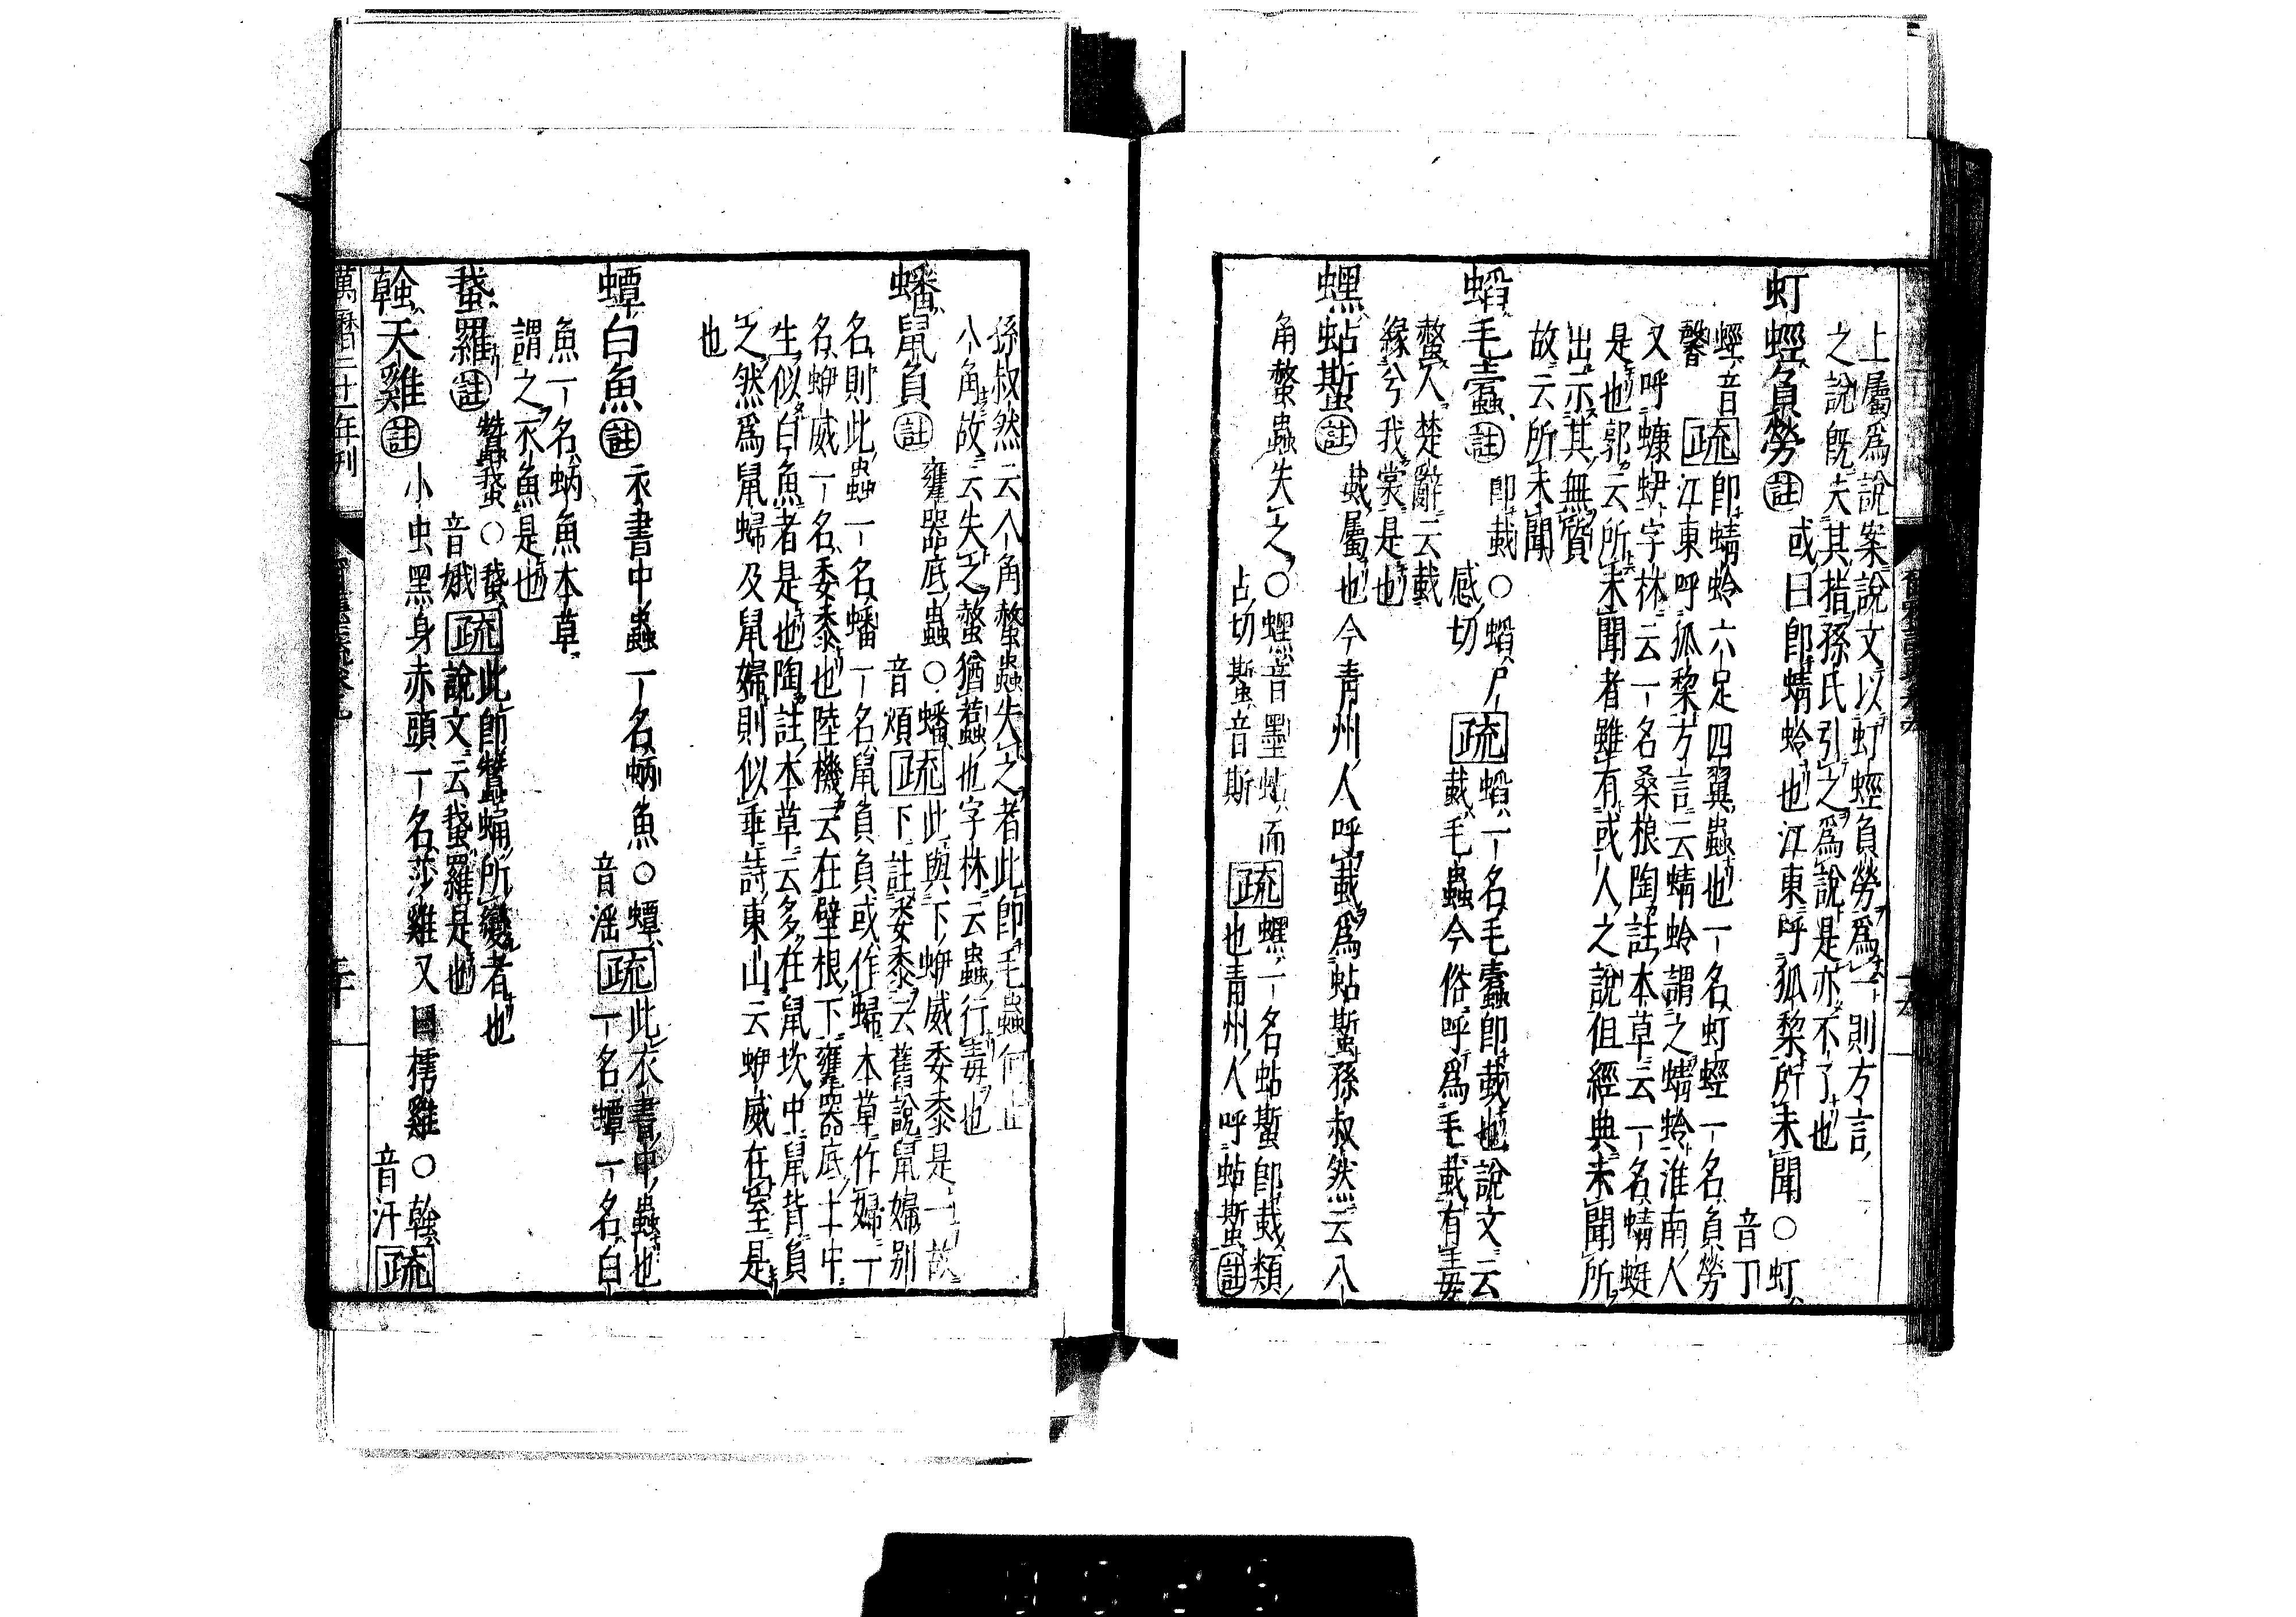 上屬爲說案說文以虰蛵負勞爲一則方言
之說旣失其指孫氏引之爲說是亦不了也
虰蛵負勞註或曰卽蜻蛉也江東呼狐黎所未聞○虰
音丁
蛵音
馨疏卽蜻蛉六足四翼蟲也一名虰蛵一名負勞
江東呼狐黎方言云蜻蛉謂之蝍蛉淮南人
又呼蠊蛜字林云一名桑根陶註本草云一名蜻蜓
是也郭云所未聞者雖有或人之說但經典未聞所
出示其無質
故云所未聞
蜭毛蠹註卽蛓○蜭戶
感切疏蜭一名毛蠹卽蛓也說文云
蛓毛蟲今俗呼爲毛蛓有毒
螫人楚辭云蛓
緣兮我裳是也
蟔蛅蟴註蛓屬也今青州人呼蛓爲蛅蟴孫叔然云八
角螫蟲失之○蟔音墨蛅而
占切蟴音斯疏蟔一名蛅蟴卽蛓類
也青州人呼蛅蟴註
孫叔然云八角螫蟲失之者此卽毛蟲何止
八角故云失之螫猶惹也字林云蟲行毒也
蟠鼠負註甕器底蟲○蟠
音煩疏此與下蛜威委黍是一故
下註委黍云舊說鼠婦別
名則此蟲一名蟠一名鼠負負或作蝜本草作婦一
名蛜威一名委黍也陸機云在壁根下甕器底土中
生似白魚者是也陶註本草云多在鼠坎中鼠背負
之然爲鼠蝜及鼠婦則似乖詩東山云蛜威在室是
也
蟫白魚註衣書中蟲一名蛃魚○蟫
音淫疏此衣書中蟲也
一名蟫一名白
魚一名蛃魚本草
謂之衣魚是也
蛾羅註蠶蛾○蛾
音娥疏此卽蠶蛹所變者也
說文云蛾羅是也
螒天雞註小虫黑身赤頭一名莎雞又曰樗雞○螒
音汗疏
萬曆二十一年刊